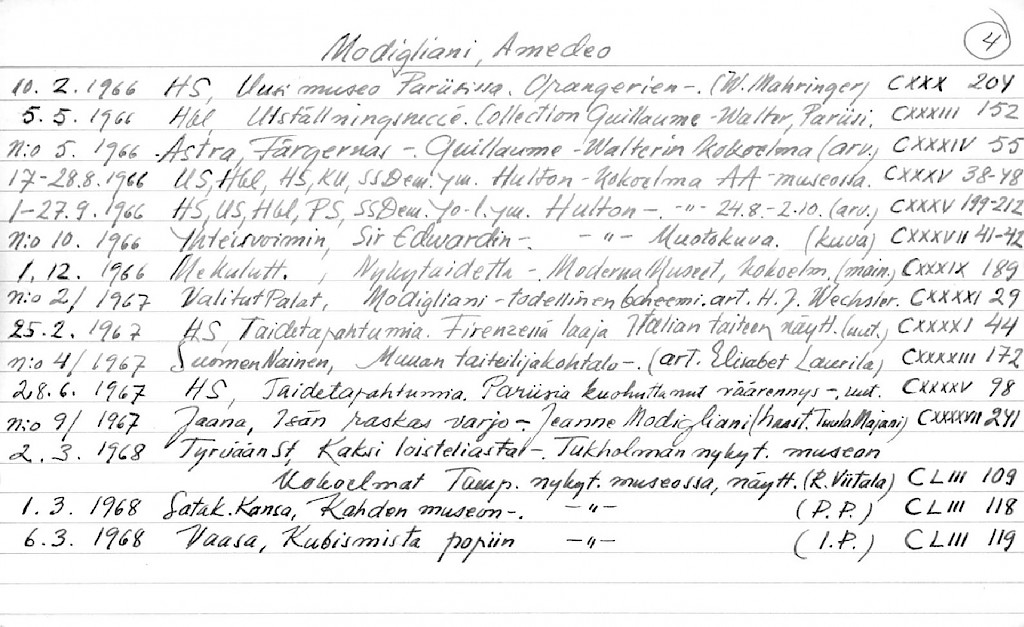 4
Modigliani, Amedeo
10. 2. 1966 HS, Uusi museo Pariisissa. Orangerien -. (W. Mahringer) CXXX 204
5. 5. 1966 Hbl, Collection Guillaume - Walter, Pariisi. CXXXIII 152
n:o 5. 1966 Astra, Färgernas -. Guillaume - Walterin kokoelma (arv.) CXXXIV 55
17-28.8. 1966 US, Hbl, HS, KU, SSDem. ym. Hulton - kokoelma AA - museossa. CXXXV 38-48
1-27. 9. 1966 HS, US, Hbl, PS, SSDem. Yo-l. ym. Hulton -. -"- 24.8.-2.10. (arv.) CXXXV 199-212
n:o 10. 1966 Yhteisvoimin, Sir Edwardin -. -"- Muotokuva. (kuva) CXXXVII 41-42
1. 12. 1966 Me kulutt. , Nykytaidetta -. Moderna Museet, kokoelm. (main.) CXXXIX 189
n:o 2/ 1967 Valitut Palat, Modigliani - todellinen boheemi. art. H. J. Wechsler. CXXXXI 29
25. 2. 1967 HS, Taidetapahtumia. Firenzessä laaja Italian taiteen näytt. (uut.) CXXXXI 44
n:o 4/ 1967 Suomen Nainen, Muuan taiteilijakohtalo -. (art. Elisabet Laurila) CXXXXIII 172
28. 6. 1967 HS, Taidetapahtumia. Pariisia kuohuttanut väärennys -, uut. CXXXXV 98
n:o 9/ 1967 Jaana, Isän raskas varjo - Jeanne Modigliani (haast. Tuula Majani) CXXXXVII 241
2. 3. 1968 Tyrvään St, Kaksi loisteliasta -. Tukholman nykyt. museon
kokoelmat Tamp. nykyt. museossa, näytt. (R. Viitala) CLIII 109
1. 3. 1968 Satak. Kansa, Kahden museon -. -"- (P.P.) CLIII 118
6. 3. 1968 Vaasa, Kubismista popiin -"- (I.P.) CLIII 119